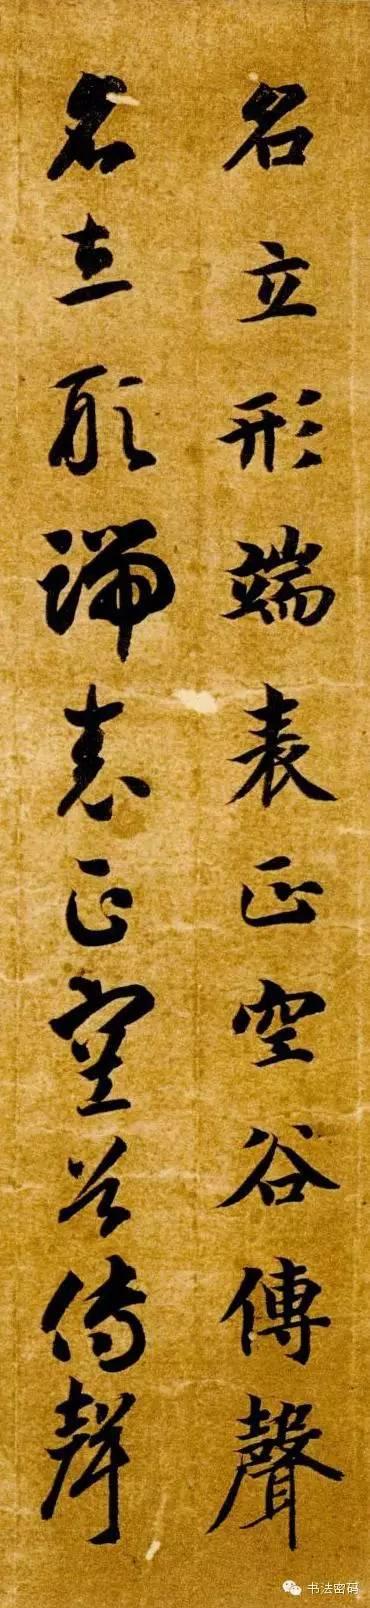 名立形端表正空谷傳聲
名立形端表正空谷傳聲
书法密码